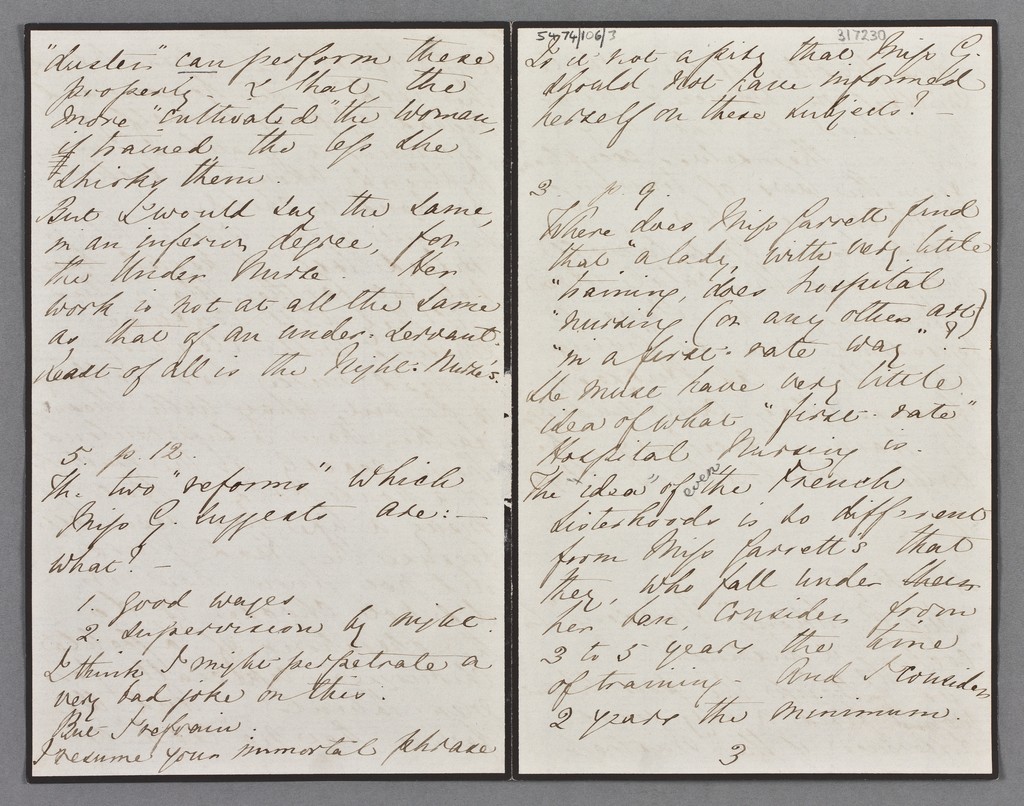 "duster" can perform these
properly - & that the
more "cultivated" the woman,
if trained the less she
shirks them.
But I would say the same,
in an inferior degree, for
the Under Nurse. Her
work is not at all the same
as that of an under-servant.
Least of all is the Night-Nurse's.
5. p. 12.
The two "reforms" which
Miss G. suggests are: -
what? -
1. good wages
2. supervision by night.
I think I might perpetrate a
very bad joke on this.
But I refrain.
I resume your immortal phrase
5474/106/3
317230
Is it not a pity that Miss G.
should not have informed
herself on these subjects? -
3. p. 9.
Where does Miss Garrett find
that "a lady, with very little
"training, does hospital
"nursing (or any other art)
"in a first-rate way"? -
She must have very little
idea of what "first-rate"
Hospital Nursing is.
The "idea" of even the French
Sisterhoods is so different
from Miss Garrett's that
they, who fall under
her ban, consider from
3 to 5 years the time
of training - And I consider
2 years the minimum.
3